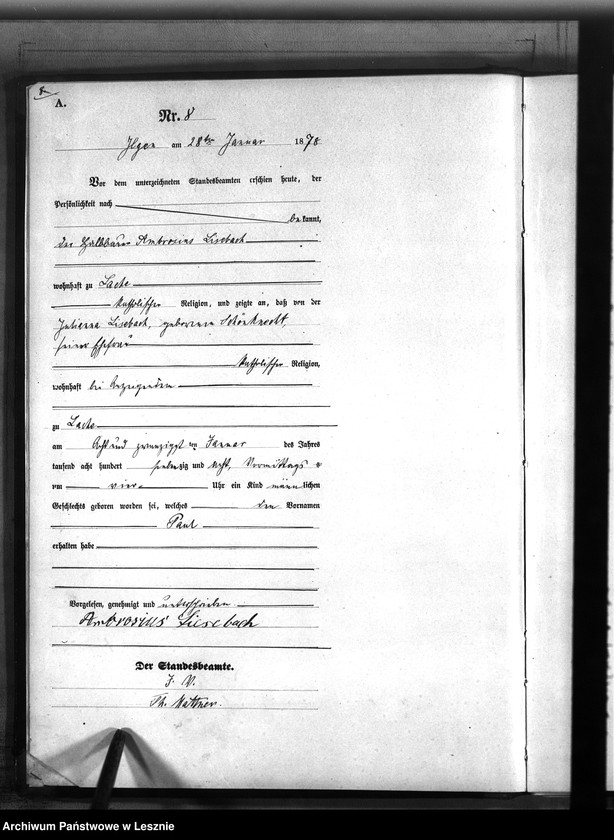 8
A.
Nr. 8
Ilgen am 28ten Januar 1878
Vor dem unterzeichneten Standesbeamten erschien heute, der
Persönlichkeit nach
bekannt,
der Halbbauer Ambrosius Lisebach
wohnhaft zu Lache
katholischer Religion, und zeigte an, daß von der
Julianna Lisebach, geborenen
seiner Ehefrau
katholischer Religion,
wohnhaft bei Anzeigendem
zu Lache
am Acht und zwanzigsten Januar des Jahres
tausend acht hundert siebenzig und acht, Vormittags
um vier Uhr ein Kind männlichen
Geschlechts geboren worden sei, welches den Vornamen
Paul
erhalten habe
Vorgelesen, genehmigt und unterschrieben
Ambrosius Liesebach
Der Standesbeamte.
J. V.
Th. Mattner.
Archiwum Państwowe w Lesznie